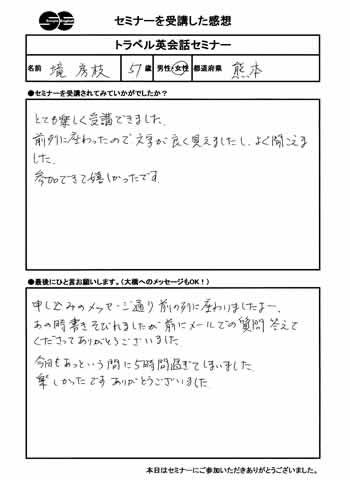 セミナーを受講した感想
トラベル英会話セミナー
名前 境 房枝 57歳 男性・女性 都道府県 熊本
●セミナーを受講されてみていかがでしたか?
とても楽しく受講できました。
前列に座わったので文字が良く見えましたし、よく聞こえま
した。
参加できて嬉しかったです。
●最後にひと言お願いします。(大橋へのメッセージもOK!)
申し込みのメッセージ通り前の列に座わりましたよー。
あの時書きそびれましたが前にメールでの質問答えて
くださってありがとうございました
今日もあっという間に5時間過ぎてしまいました。
楽しかったです ありがとうございました
本日はセミナーにご参加いただきありがとうございました。